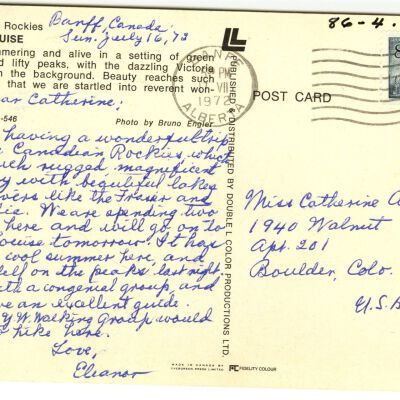 Rockies
UISE
mmering and alive in a setting of green
d lifty peaks, with the dazzling Victoria
n the background. Beauty reaches such
that we are startled into reverent won-
-546
Photo by Bruno Engler
Banff, Canada
Sun. July 16, 72
ar Catherine;
having a wonderful trip
e Canadian Rockies which
ch rugged, magnificent
y with beautiful lakes
vers like the Fraser and
ie. We are spending two
here and will go on to
ouise tomorrow. It has
cool summer here, and
ell on the peaks last night.
th a congenial group, and
ve an excellent guide.
Y.W. Walking Group would
o hike here.
Love,
Eleanor
LL
PUBLISHED & DISTRIBUTED BY DOUBLE L COLOR PRODUCTIONS LTD.
MADE IN CANADA BY
EVERGREEN PRESS LIMITED
FC FIDELITY COLOUR
BANFF
PM
VII
1972
ALBERTA
POST CARD
86-4.
8
Miss Catherine A
1940 Walnut
Apt. 201
Boulder, Colo.
U.S.